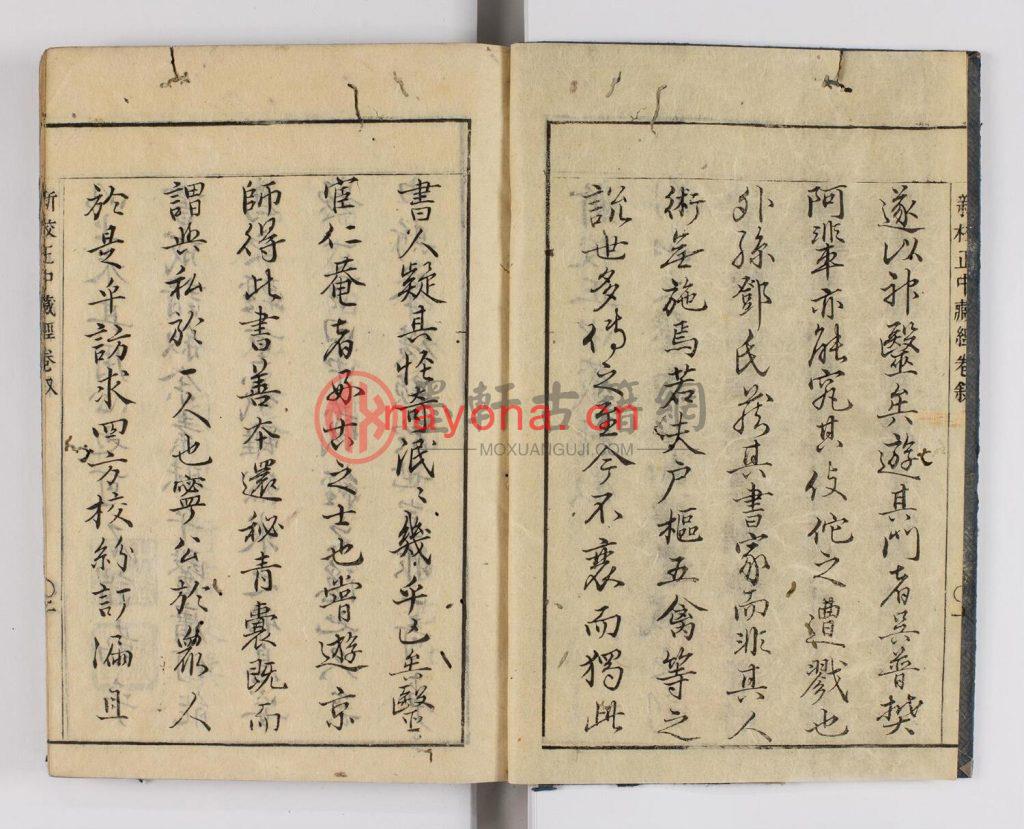 新校正中藏經卷敘
〇一
遂以神毉矣遊其門者吳普樊
阿輩亦能究其伎佗之遭戮也
外孫鄧氏藏其書家而非其人
術無施焉若夫戶樞五禽等之
說世多傳之至今不衰而獨此
書人疑其怪奇泯〻幾乎已矣毉
官仁菴者好古之士也嘗遊京
師得此書善本還秘青囊既而
謂與私於一人也寧公於眾人
於是乎訪求四方校紛訂漏且
新校正中藏經卷叙
〇二
墨軒古籍網
nayona.cn
MOXUANGUJI.COM